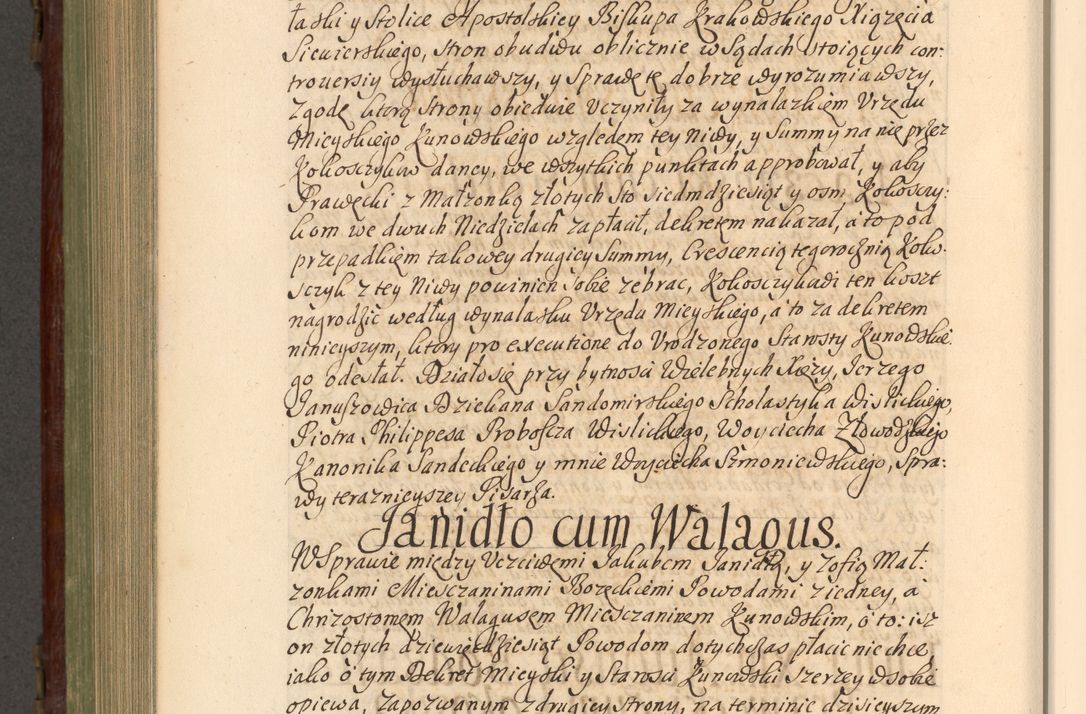 łaski y Stolice Apostolskiey Biskupa Krakowskiego Xiązęcia
Siewierskiego, stron obudwu oblicznie w Sądach stoiących con-
troversiy wysłuchawszy, y Sprawę tę dobrze wyrozumiawszy,
Zgodę którą strony obiedwie Uczyniły za wynalazkiem Urzędu
Mieyskiego Kunowskiego względem tey Niwy, y Summy na nię przez
Kokosczyków dancy, we wszytkich punktach approbował, y aby
Prawęcki z Małżonką złotych sto siedmdziesiąt y osm Kokosczy:
kom we dwuch Niedzielach zapłacił, dekretem nakazał, á to pod
przepadkiem takowey drugiey Summy, Crescencią tegoroczną Koko-
sczyk z tey Niwy powinien sobie zebrac, Kokosczykowi ten koszt
nagrodzić według wynalasku Urzędu Mieyskiego, á to za dekretem
ninieyszym, który pro executione do Urodzonego Starosty Kunowskie
go odesłał. Działo się przy bytnosci Wielebnych Xięży, Ierzego
Januszowica Dziekana Sandomirskiego Scholastyka Wislickiego,
Piotra Philippesa Proboscza Wislickiego, Woyciecha Złowodzkiego
Kanonika Sandeckiego y mnie Woyciecha Szmoniewskiego, Spra:
wy teraznieyszey Pisarza.
Janidło cum Walagus.
W Sprawie między Uczciwemi Jakubem Janidłą, y Zofią Mał:
zonkami Miesczaninami Bozęckiemi Powodami z iedney, á
Chrizostomem Walagusem Miesczaninem Kunowskim, ó to: isz
on złotych dziewięcdziesiąt Powodom dotychczas płacić nie chce,
iako ó tym Dekret Mieyski y Starosci Kunowski szerzey w sobie
opiewa, Zapozwanym z drugiey strony, na terminie dzisieyszym